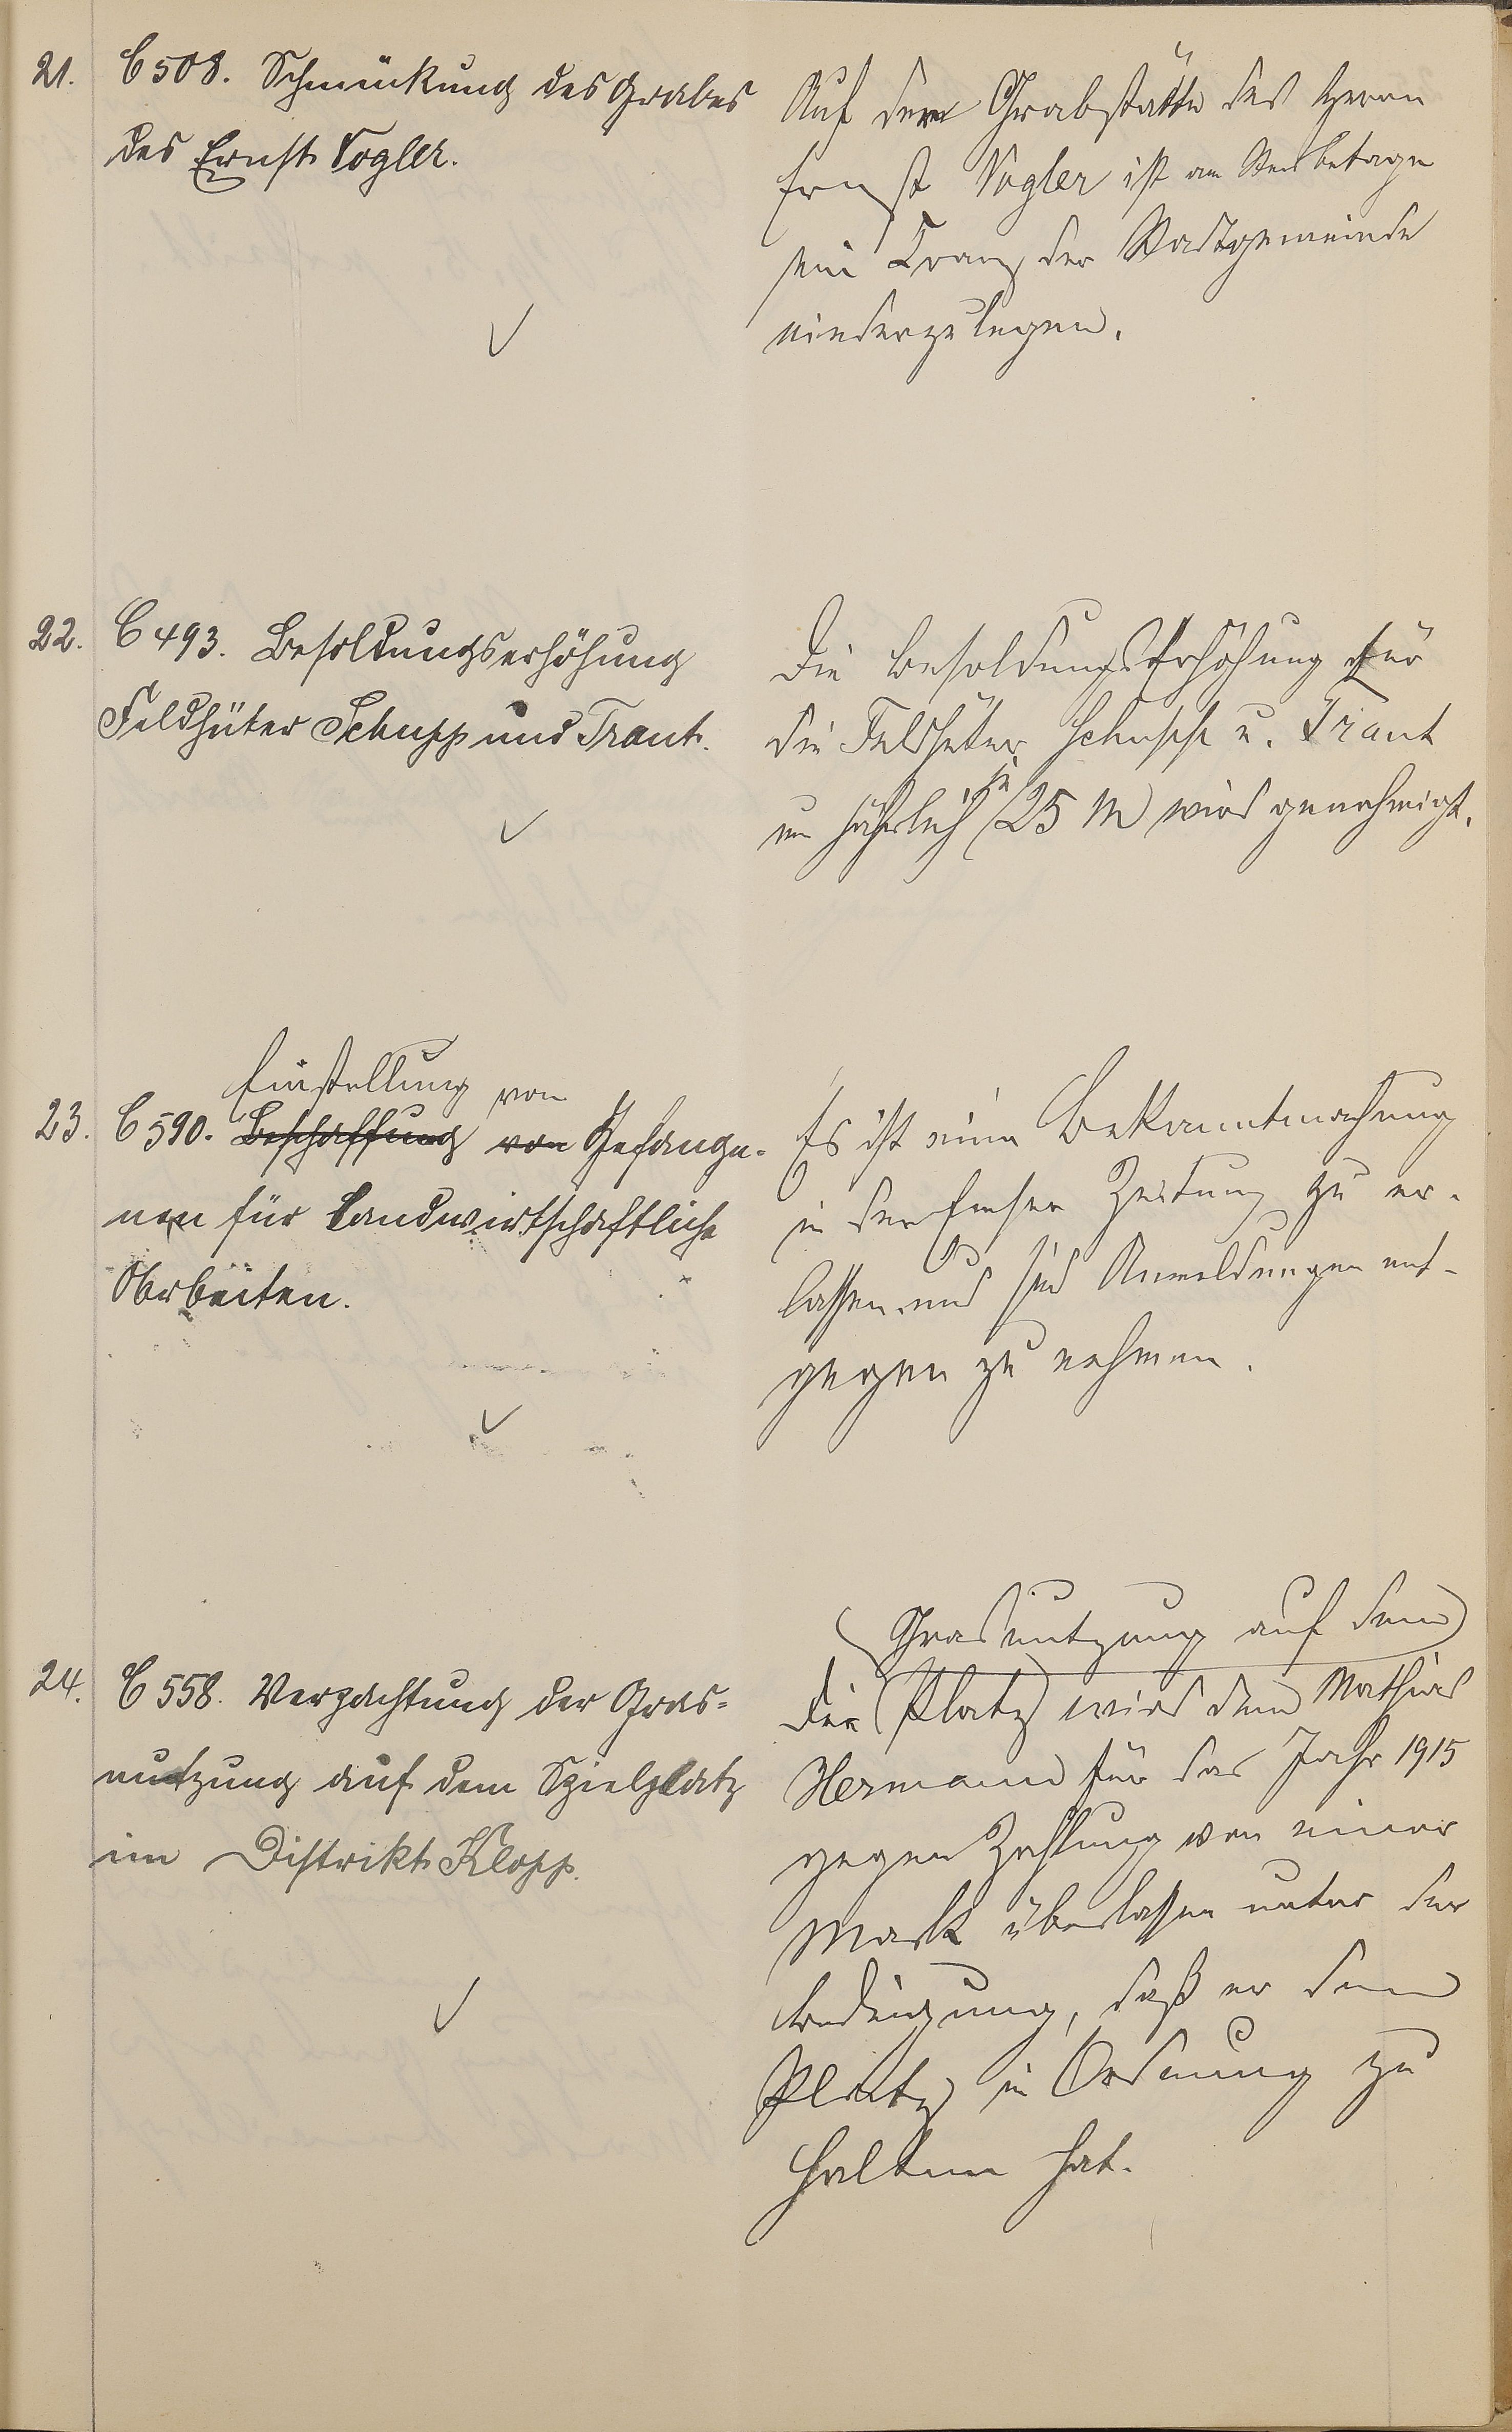 21. C 508. Schmückung des Grabes
des Ernst Vogler.
Auf der Grabstätte des Herrn
Ernst Vogler ist am Sterbetage
ein Kranz der Stadtgemeinde
niederzulegen.
22. C 493. Besoldungserhöhung
Feldhüter Schupp und Trant.
Die Besoldungserhöhung für
die Feldhüter Schupp u. Trant
um jährlich je 25 M wird genehmigt.
23. C 590. Beschaffung von Gefange-
Einstellung von
nen für Landwirtschaftliche
Arbeiten.
Es ist eine Bekanntmachung
in der Emser Zeitung zu er-
lassen und sind Anmeldungen ent-
gegen zu nehmen.
24. C 558. Verpachtung der Gras-
nutzung auf dem Spielplatz
im Distrikt Klopp.
Grasnutzung auf dem
Die Platz wird dem Mathias
Hermann für das Jahr 1915
gegen Zahlung von einer
Mark überlassen unter der
Bedingung, daß er den
Platz in Ordnung zu
halten hat.